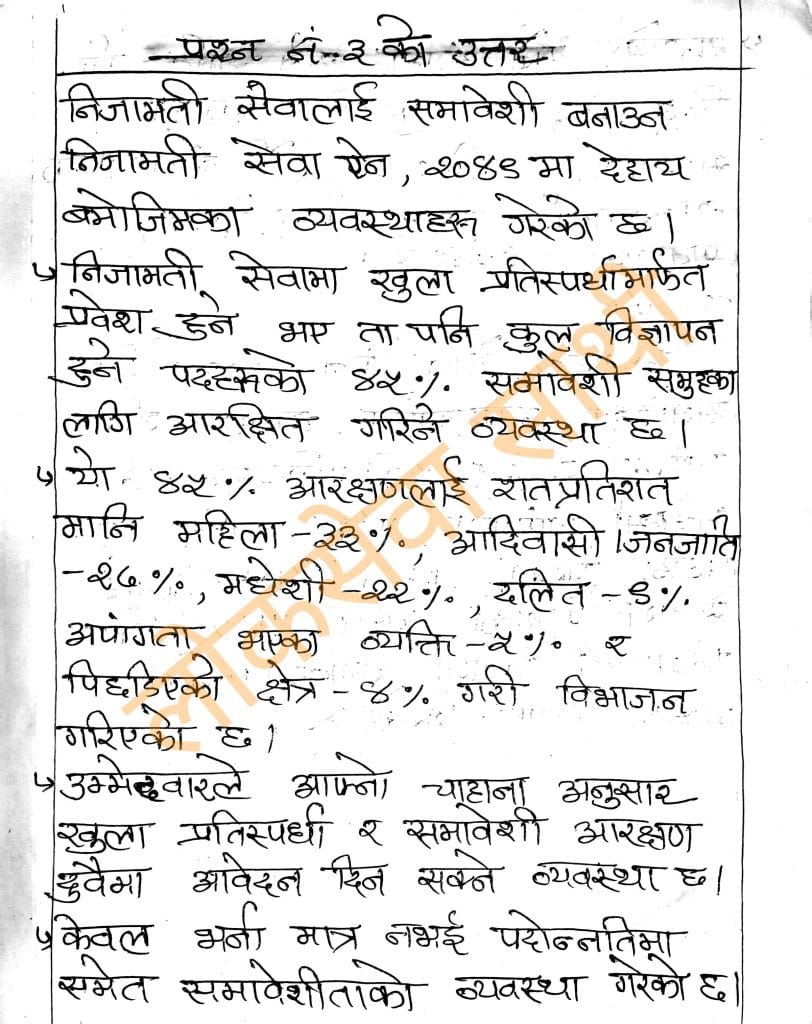 प्रश्न नं-३ को उत्तर
निजामती सेवालाई समावेशी बनाउन
निजामती सेवा ऐन, २०४९ मा देहाय
बमोजिमका व्यवस्थाहरू गरेको छ।
↳ निजामती सेवामा खुला प्रतिस्पर्धामार्फत
प्रवेश हुने भए ता पनि कुल विज्ञापन
हुने पदहरूको ४५% समावेशी समुहका
लागि आरक्षित गरिने व्यवस्था छ।
↳ यो ४५% आरक्षणलाई शतप्रतिशत
मानि महिला -३३%, आदिवासी।जनजाति
-२७%, मधेशी -२२%, दलित -९%
अपांगता भएका व्यक्ति -५% र
पिछडिएको क्षेत्र -४% गरी विभाजन
गरिएको छ।
↳ उम्मेदवारले आफ्नो चाहाना अनुसार
खुला प्रतिस्पर्धा र समावेशी आरक्षण
दुवैमा आवेदन दिन सक्ने व्यवस्था छ।
↳ केवल भर्ना मात्र नभई पदोन्नतिमा
समेत समावेशीताको व्यवस्था गरेको छ।
लोकसेवा साथी